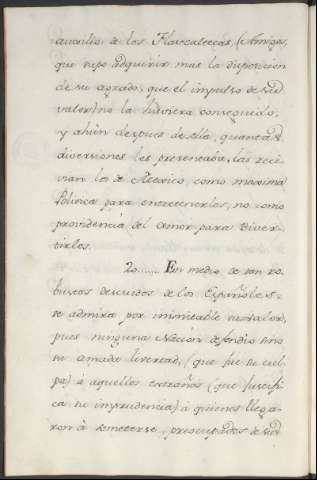 auxilio de los Tlaxcaltecas (Amigos,
que supo adquirir mas la disposicion
de su agrado, que el impulso de su
valor) no la huviera conseguido;
y ahún despues de ella, quantas
diversiones les presentaba, las reci-
vian los de Mexico, como maxima
Politica para entretenerlos, no como
providencia del amor para diver-
tirlos.
20...... En medio de tan ro-
bustos descuidos de los Españoles,
se admira por inimitable su valor,
pues ninguna Nacion defendio
su amada livertad, (que fue su cul-
pa) a aquellos extraños (que justifi-
ca su imprudencia) à quienes llega-
ron à someterse, preocupados de su